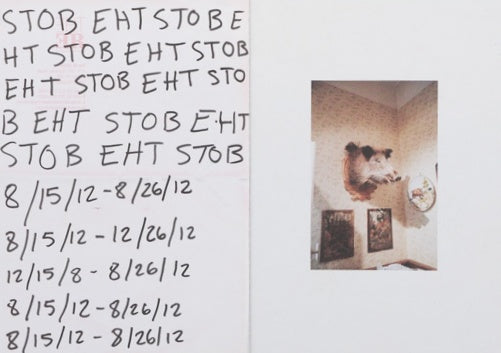 STOB EHT STOB E
HT STOB EHT STOB
EHT STOB EHT STO
B EHT STOB EHT
STOB EHT STOB
8/15/12-8/26/12
8/15/12-12/26/12
12/15/8-8/26/12
8/15/12-8/26/12
8/15/12-8/26/12